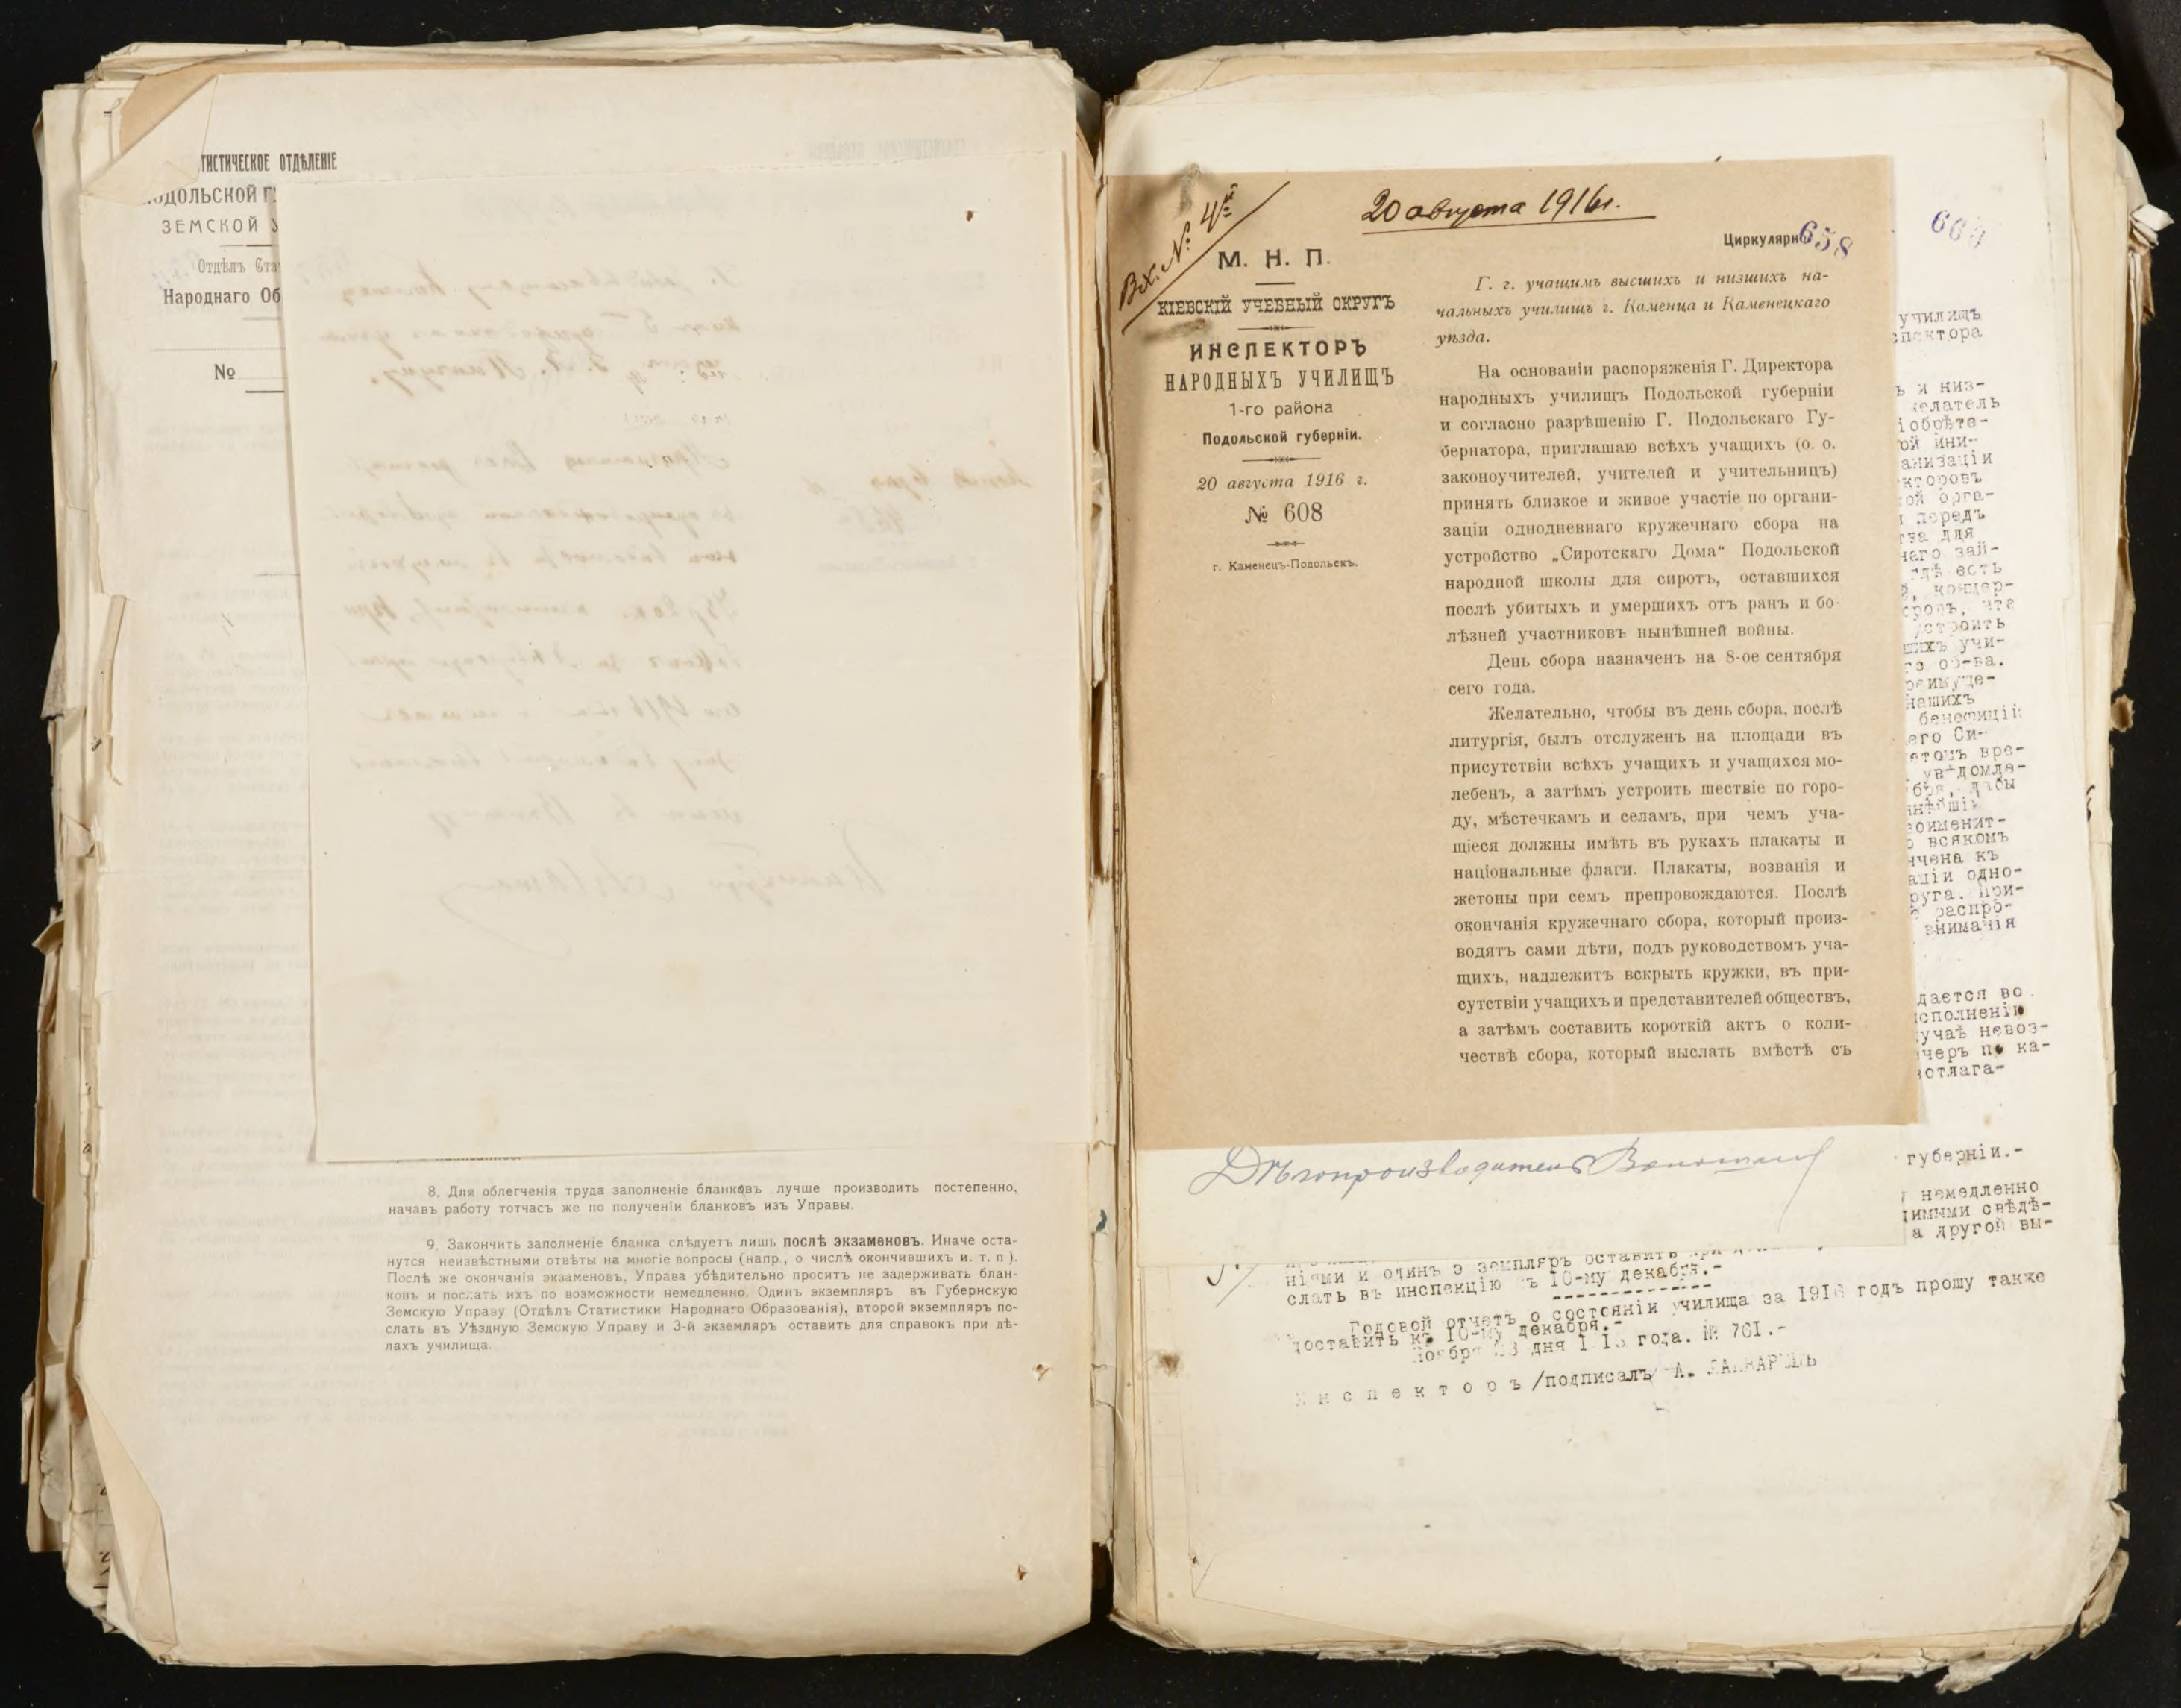 ТИСТИЧЕСКОЕ ОТДѢЛЕНІЕ
ОДОЛЬСКОЙ Г
ЗЕМСКОЙ У
Отдѣлъ Ста
Народнаго Об
№
8. Для облегченія труда заполненіе бланковъ лучше производить постепенно,
начавъ работу тотчасъ же по полученіи бланковъ изъ Управы.
9. Закончить заполненіе бланка слѣдуетъ лишь послѣ экзаменовъ. Иначе оста-
нутся неизвѣстными отвѣты на многіе вопросы (напр., о числѣ окончившихъ и. т. п ).
Послѣ же окончанія экзаменовъ, Управа убѣдительно проситъ не задерживать блан-
ковъ и послать ихъ по возможности немедленно. Одинъ экземпляръ въ Губернскую
Земскую Управу (Отдѣлъ Статистики Народнаго Образованія), второй экземпляръ по-
слать въ Уѣздную Земскую Управу и 3-й экземляръ оставить для справокъ при дѣ-
лахъ училища.
Вх. №
20 августа 1916 г.
М. Н. П.
КІЕВСКІЙ УЧЕБНЫЙ ОКРУГЪ
ИНСПЕКТОРЪ
НАРОДНЫХЪ УЧИЛИЩЪ
1-го района
Подольской губерніи.
20 августа 1916 г.
№ 608
г. Каменецъ-Подольскъ.
Циркулярно 658
Г. г. учащимъ высшихъ и низшихъ на-
чальныхъ училищъ г. Каменца и Каменецкаго
уѣзда.
На основаніи распоряженія Г. Директора
народныхъ училищъ Подольской губерніи
и согласно разрѣшенію Г. Подольскаго Гу-
бернатора, приглашаю всѣхъ учащихъ (о. о.
законоучителей, учителей и учительницъ)
принять близкое и живое участіе по органи-
заціи однодневнаго кружечнаго сбора на
устройство „Сиротскаго Дома“ Подольской
народной школы для сиротъ, оставшихся
послѣ убитыхъ и умершихъ отъ ранъ и бо-
лѣзней участниковъ нынѣшней войны.
День сбора назначенъ на 8-ое сентября
сего года.
Желательно, чтобы въ день сбора, послѣ
литургія, былъ отслуженъ на площади въ
присутствіи всѣхъ учащихъ и учащихся мо-
лебенъ, а затѣмъ устроить шествіе по горо-
ду, мѣстечкамъ и селамъ, при чемъ уча-
щіеся должны имѣть въ рукахъ плакаты и
національные флаги. Плакаты, возванія и
жетоны при семъ препровождаются. Послѣ
окончанія кружечнаго сбора, который произ-
водятъ сами дѣти, подъ руководствомъ уча-
щихъ, надлежитъ вскрыть кружки, въ при-
сутствіи учащихъ и представителей обществъ,
а затѣмъ составить короткій актъ о коли-
чествѣ сбора, который выслать вмѣстѣ съ
училищъ
спектора
ъ и низ-
желатель
іобрѣте-
ой ини-
анизаціи
кторовъ
ой орга-
передъ
тва для
наго зай-
гдѣ есть
концер-
строить
шихъ учи-
го об-ва.
реимуще-
нашихъ
бенефиціи
его Си-
этомъ вре-
увѣдомле-
оименит-
о всякомъ
нчена къ
аціи одно-
руга. При-
распро-
вниманія
дается во
исполненію
учаѣ невоз-
черъ по ка-
отлага-
губерніи.-
немедленно
димыми свѣдѣ-
а другой вы-
Дѣлопроизводитель
ніями и одинъ э земпляръ оставить при
слать въ инспекцію къ 10-му декабря.-
Годовой отчетъ о состояніи училища за 1916 годъ прошу также
доставить къ 10-му декабря.-
Ноября дня года. № 761.-
Инспекторъ /подписалъ/ А.